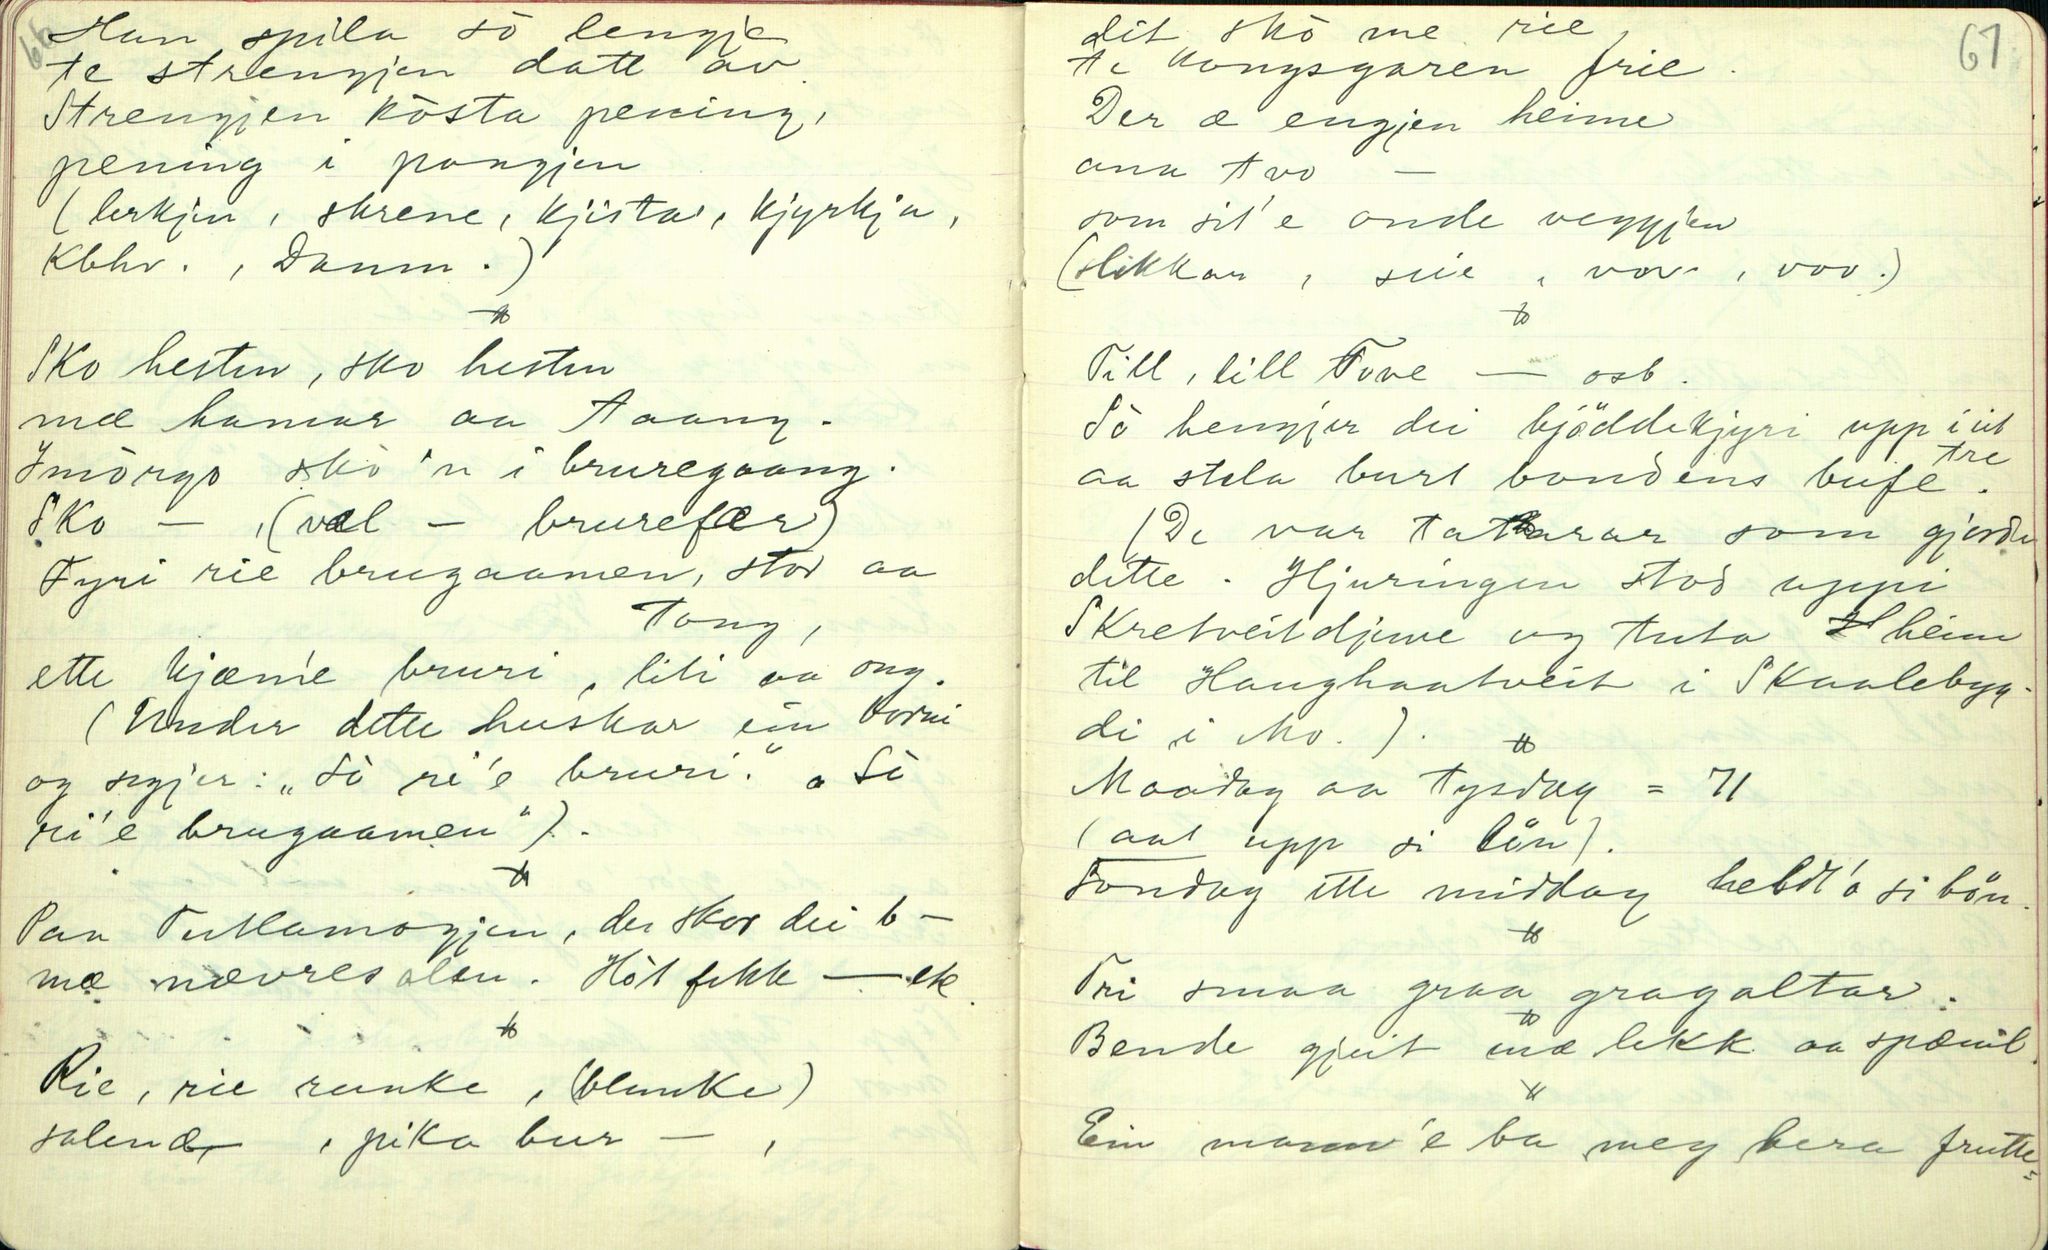 66
Han spila so lengje
te strengjen datt av.
Strengjen kòsta pening,
pening i pongjen
(lerkjen, skrene, kjista, kjyrkja,
Kbhv., Danm.)
Sko hesten, sko hesten
mæ hamar aa taang.
Imòrgo skò'n i bruregaang.
Sko — , (væl — brurefær)
Fyri rie brugaamen, stor aa
tong,
ette kjæm'e bruri, liti aa ong.
(Under dette huskar ein borni
og segjer: „Sò ri'e bruri." „Sò
ri'e brugaamen").
Paa Tutlamogjen, der skor dei b—
mæ nævresolen. Hòt fekk — ek.
Rie, rie runke, (blunke)
salend, , pika bur — ,
67
dit skò me rie,
te kongsgaren frie.
Der æ engjen heime
ana tvo —
som sit'e onde veggjen
(slikkar, sùe, vov, voo.)
Till, lill Tove — osb.
Sò hengjer dei bjøddekjyri upp i eit
tre
aa stela burt bondens bufe.
(De var tatarar som gjorde
dette. Hjuringen stod uppi
Skretveitdjuve og tuta heim
til Haughaatveit i Skaalebyg-
di i Mo.).
Maadag aa tysdag = 71
(aat upp si bön).
Sondag ette middag heldt'o si bön.
Tri smaa graa gragaltar.
Bende gjeit mæ lekk aa spænil.
Ein mann'e ba meg bera frutte-